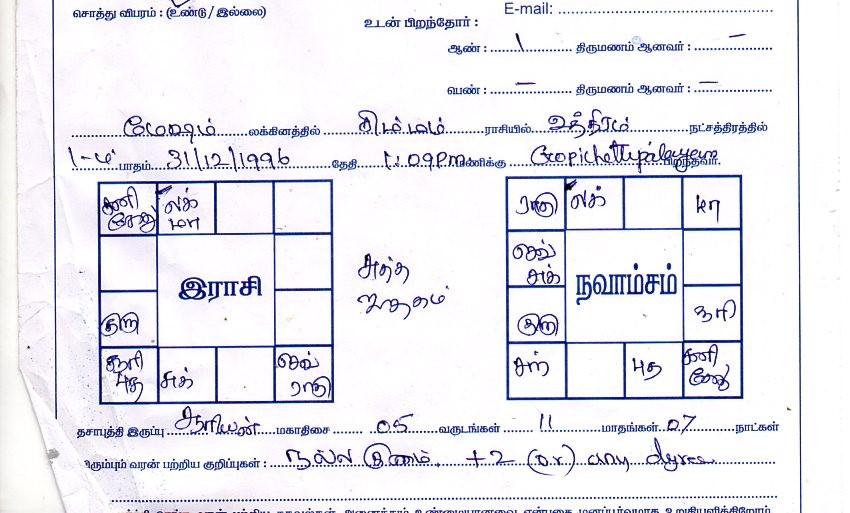 சொத்து விபரம் : (உண்டு / இல்லை)
E-mail:
உடன் பிறந்தோர் :
ஆண் : 1 திருமணம் ஆனவர் : –
பெண் : – திருமணம் ஆனவர் : –
மேஷம் லக்கினத்தில் சிம்மம் ராசியில் உத்திரம் நட்சத்திரத்தில்
1-ம் பாதம் 31/12/1996 தேதி 1:09 PM மணிக்கு Gopichettipalayam பிறந்தவர்
சனி கேது லக் மா
ராகு லக் மா
இராசி
சுத்த ஜாதகம்
செவ் சுக்
நவாம்சம்
குரு
குரு சூரி
சூரி புத சுக் செவ் ராகு
புத சனி கேது
தசாபுத்தி இருப்பு சூரியன் மகாதிசை 05 வருடங்கள் 11 மாதங்கள் 07 நாட்கள்
விரும்பும் வரன் பற்றிய குறிப்புகள் : நல்ல குணம். +2 (or) any